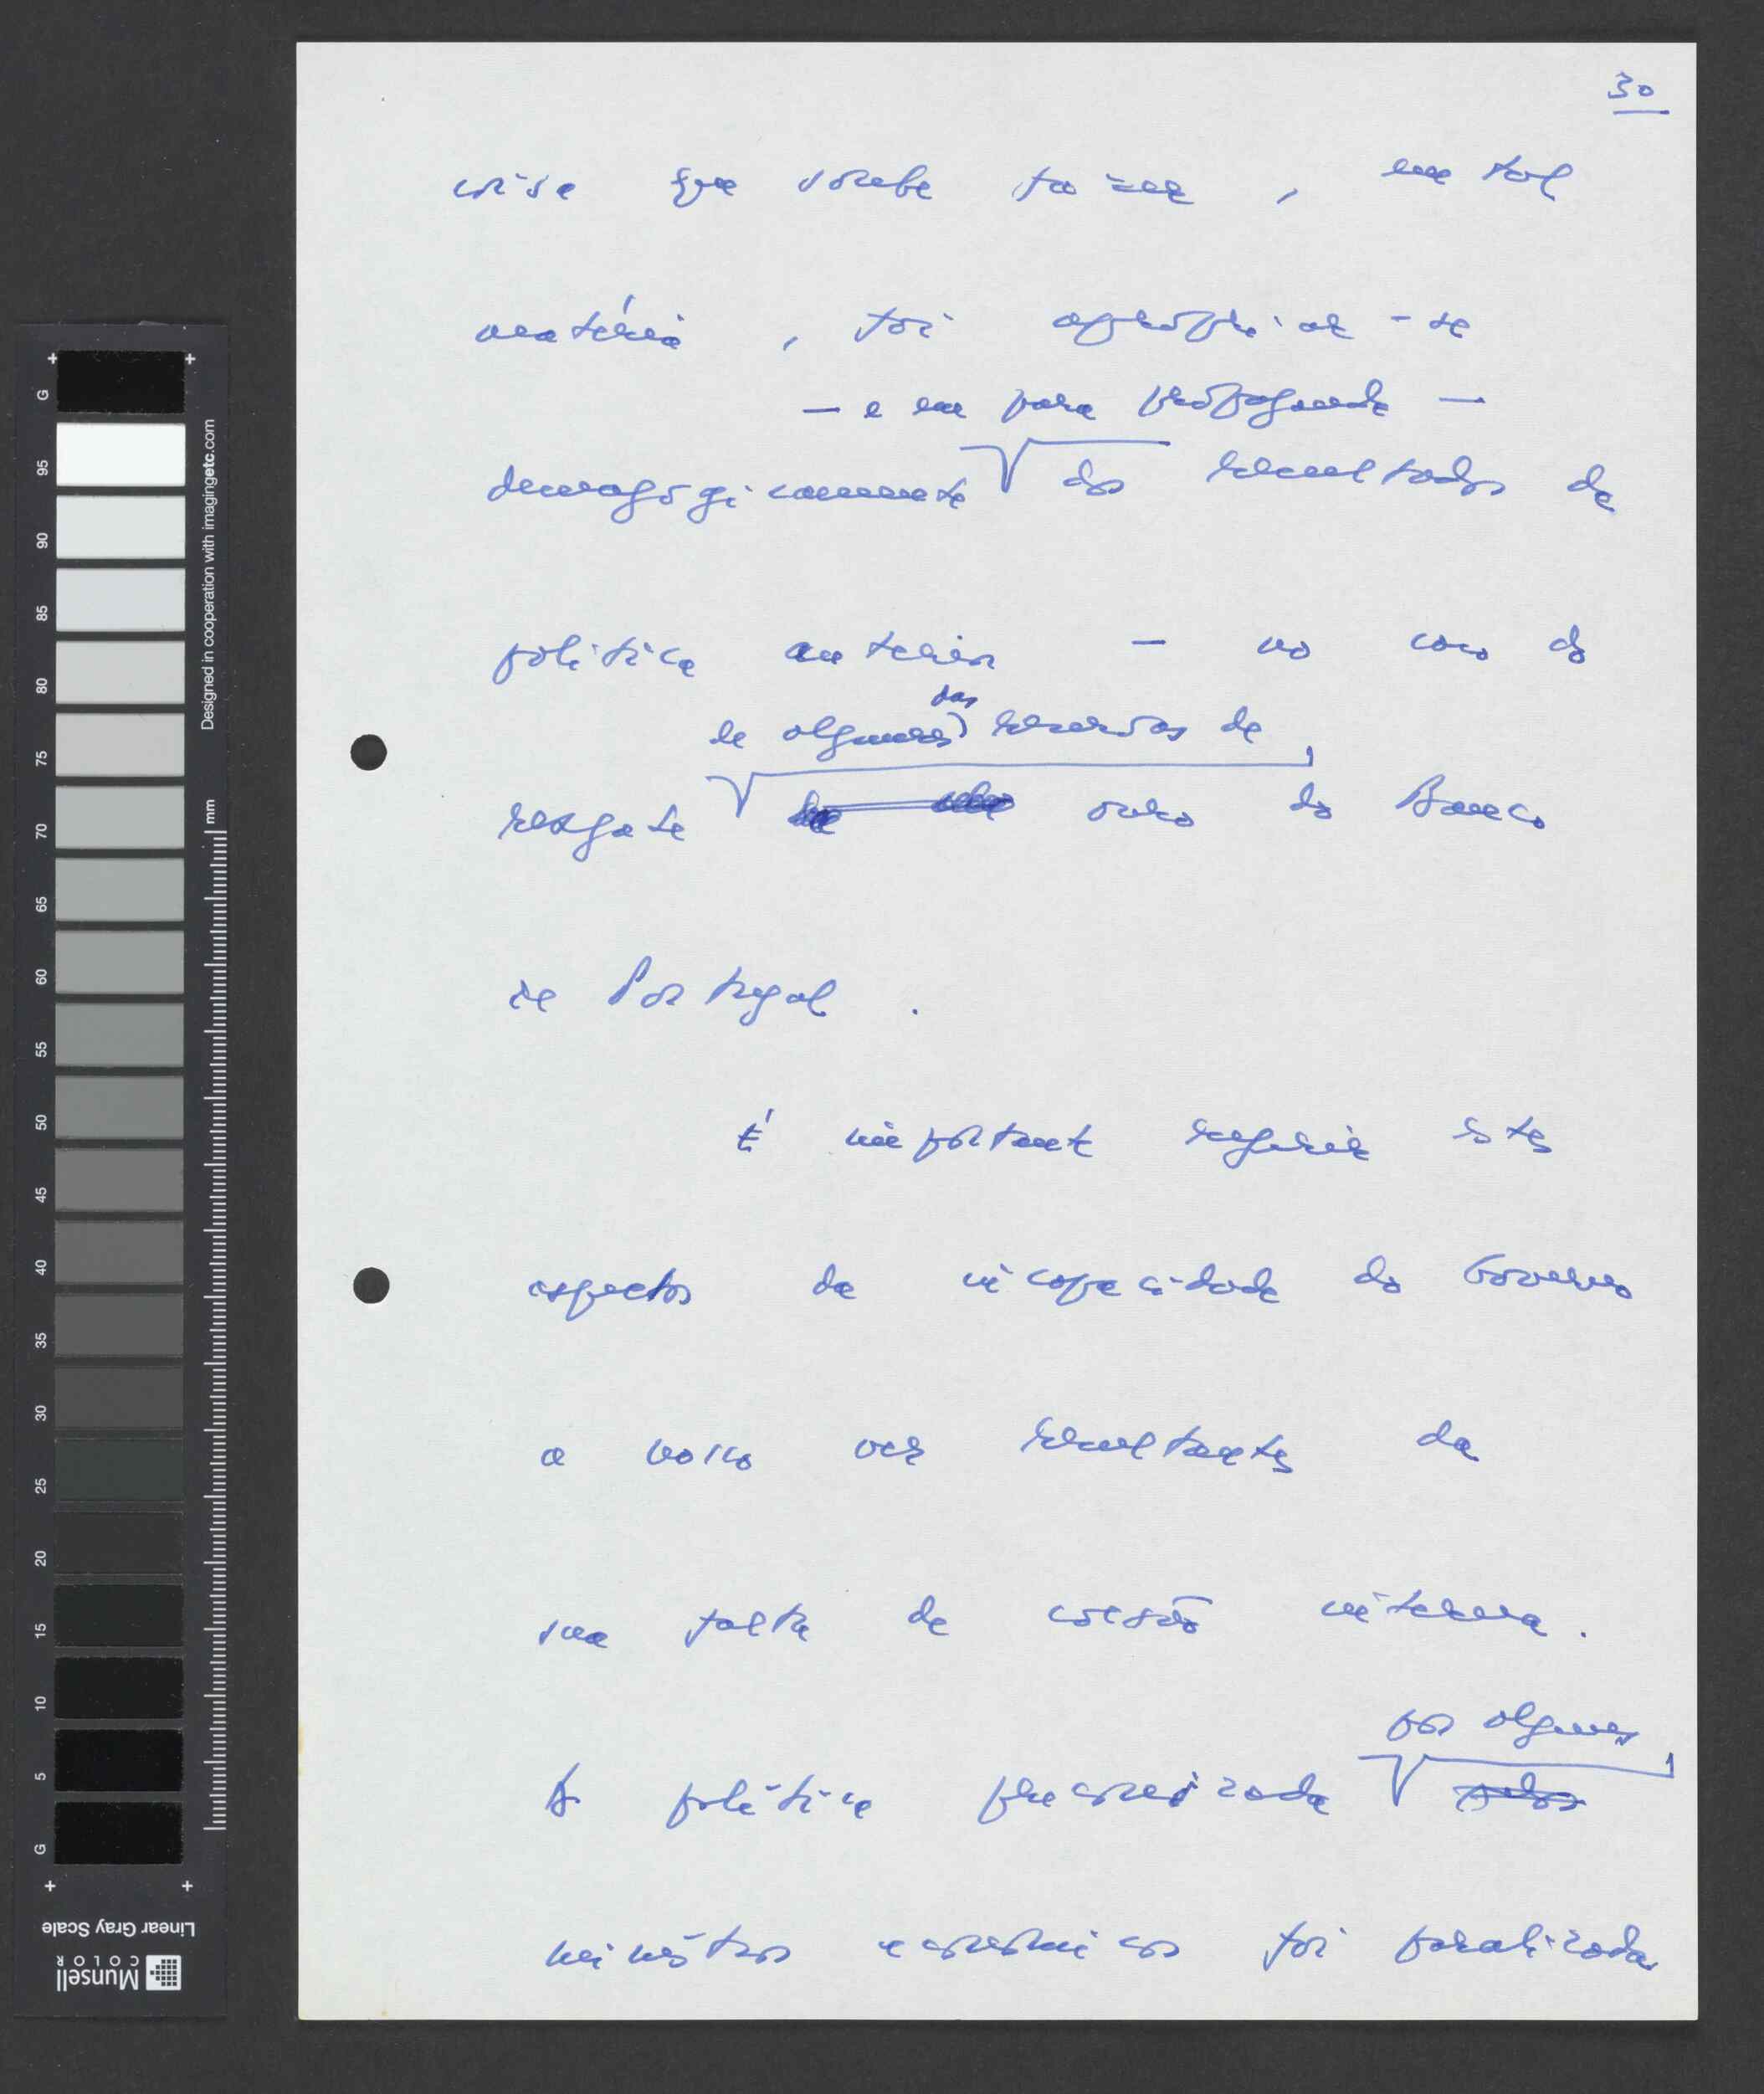 30
coisa que soube fazer, em tal
matéria, foi apropriar-se
— e em pura propaganda —
demagògicamente dos resultados da
política anterior — no caso do
das
de algumas reservas de
resgate ouro do Banco
de Portugal.
É importante referir estes
aspectos da incapacidade do Governo
a nosso ver resultantes da
sua falta de coesão interna.
por alguns
A política preconizada pelos
ministros económicos foi paralizada
G 95 90 85 80 75 70 65 60 55 50 45 40 35 30 25 20 15 10 5 G
Designed in cooperation with imagingetc.com
mm
Linear Gray Scale
Munsell
COLOR